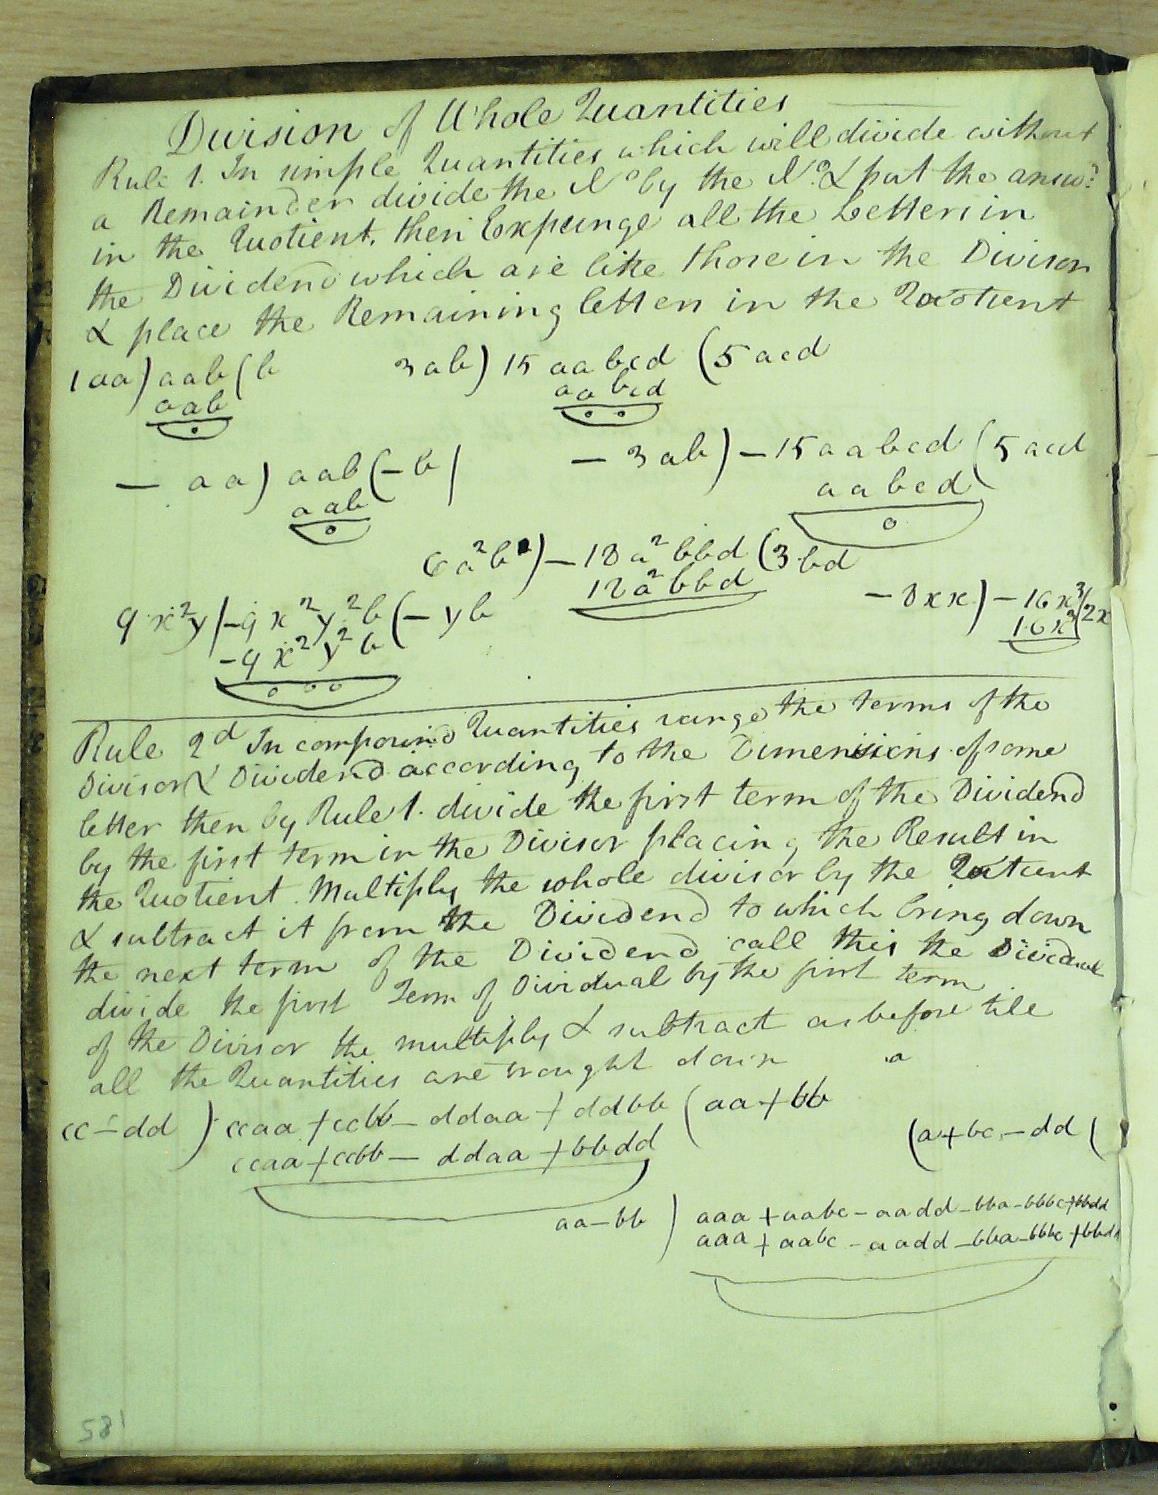 Division of Whole Quantities
Rule 1. In simple Quantities which will divide without
a Remainder divide the No by the No. & put the answ:
in the Quotient. then Expunge all the Letters in
the Dividend which are like those in the Divisor
& place the Remaining letters in the Quotient
1aa) aab (b 3ab) 15 aabcd (5 acd
aab aabcd
0 0 0
- aa) aab (-b - 3ab) -15 aabcd (5 acd
aab aabcd
0 0
6a²b²) -18a²bbd (3bd
18a²bbd
9x²y) -9x²y²b (-yb -8xx) -16x³ (2x
-9x²y²b 16x³
0 0 0
Rule 2d In compound Quantities range the terms of the
Divisor & Dividend according to the Dimensions of some
letter then by Rule 1. divide the first term of the Dividend
by the first term in the Divisor placing the Result in
the Quotient. Multiply the whole divisor by the Quotient
& subtract it from the Dividend to which bring down
the next term of the Dividend call this the Dividual
divide the first Term of Dividual by the first term
of the Divisor the multiply & subtract as before tile
all the Quantities are brought down a
cc-dd) ccaa + ccbb - ddaa + ddbb (aa + bb
ccaa + ccbb - ddaa + bbdd
(a + bc - dd (
aa-bb) aaa + aabc - aadd - bba - bbbc + bbdd
aaa + aabc - aadd - bba - bbbc + bbdd
581